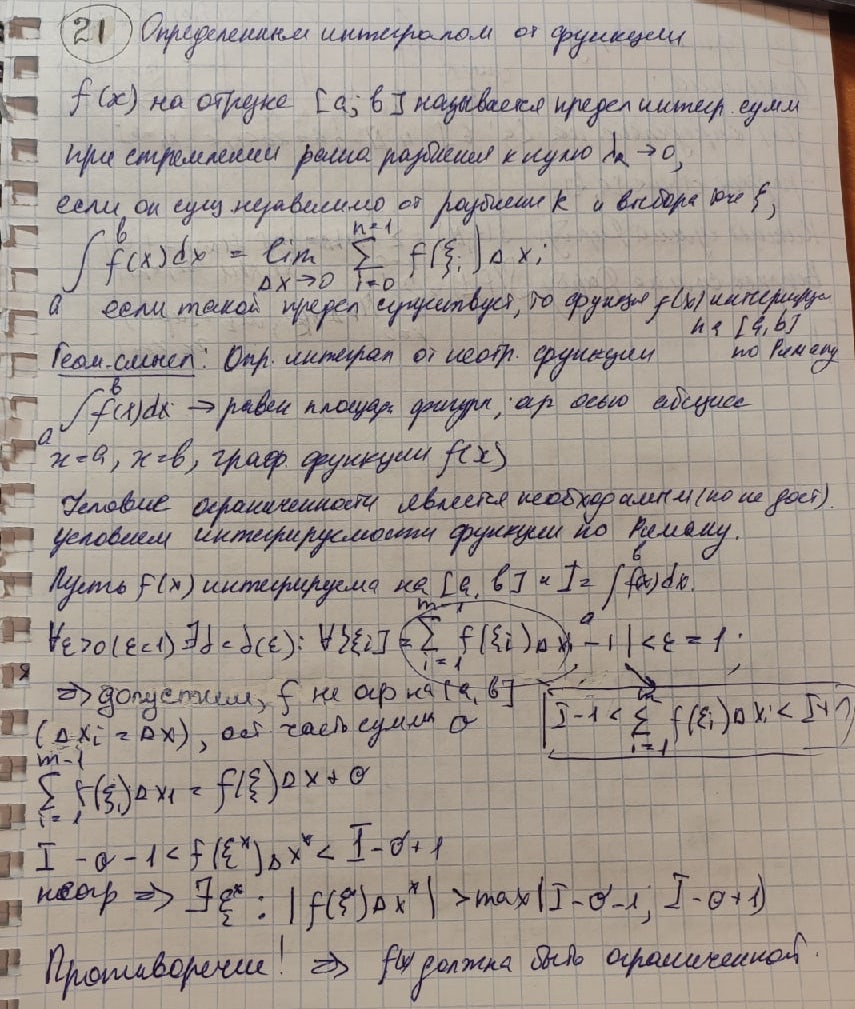 21 Определенным интегралом от функции
f(x) на отрезке [a; b] называется предел интегр. сумм
при стремлении ранга разбиения к нулю λ_n → 0,
если он сущ независимо от разбиения k и выбора точе ξ,
∫_a^b f(x)dx = lim_{Δx→0} ∑_{i=0}^{n=1} f(ξ_i)Δx_i
если такой предел существует, то функция f(x) интегрируе
на [a, b]
по Риману
Геом. смысл: Опр. интеграл от неотр. функции
∫_a^b f(x)dx → равен площади фигуры, огр осью абсцисс
x=a, x=b, граф функции f(x)
Условие ограниченности является необходимым (но не дост).
условием интегрируемости функции по Риману.
Пусть f(x) интегрируема на [a, b] и I = ∫_a^b f(x)dx.
∀ε>0 (ε=1) ∃δ=δ(ε): ∀{ξi} = ∑_{i=1}^{m-1} f(ξi)Δxi - 1| < ε = 1;
⇒ допустим, f не огр на [a, b]
|I-1 < ∑_{i=1}^{m} f(ξi)Δxi < I+1)
(Δxi = Δx), ост часть суммы σ
∑_{i=1}^{m-1} f(ξi)Δx1 = f(ξ)Δx + σ
I - σ - 1 < f(ξ*)Δx* < I - σ + 1
неогр ⇒ ∃ξ*: |f(ξ*)Δx*| > max(I-σ-1; I-σ+1)
Противоречие! ⇒ f(x) должна быть ограниченной.